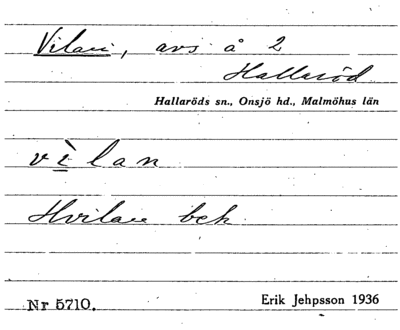 Vilan, avs å 2
Hallaröd
Hallaröds sn., Onsjö hd., Malmöhus län
vìlan
Hvilan bek
Nr 5710.
Erik Jehpsson 1936